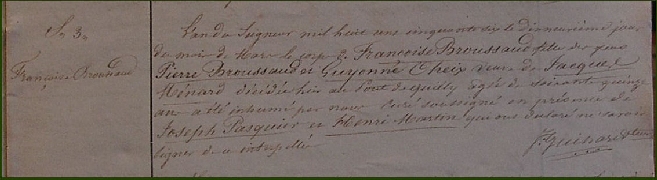 N. 3.
Françoise Broussaud
L'an du Seigneur mil huit cent cinquante six le dixneuvième jour
du mois de Mars le corps de Françoise Broussaud fille de feus
Pierre Broussaud et Guyonne Cheix veuve de Jacques
Ménard décédée hier au Pont âgée de soixante quinze
ans a été inhumé par nous Curé soussigné en présence de
Joseph Pasquier et Henri Marton qui ont déclaré ne savoir
signer de ce interpellé